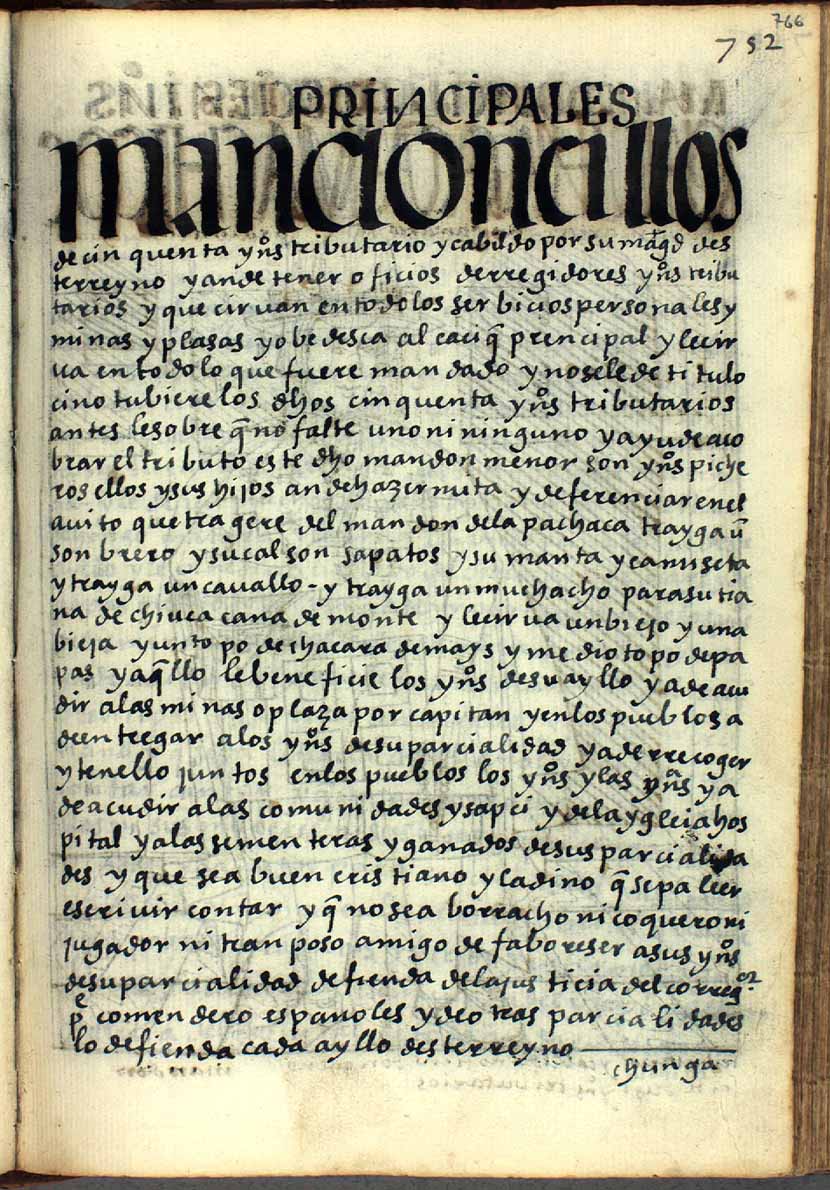 766
752
PRINCIPALES
mandoncillos
de cinquenta yños tributario y cabildo por su mag̃d des
terreyno y an de tener oficios de rregidores yños tribu
tarios y que cirvan en todo los serbicios personales y
minas y plasas y obedesca al caciq̃ prencipal y le cir
va en todo lo que fuere mandado y no se le de titulo
cino tubiere los dhos cinquenta yños tributarios
antes le sobre q̃ no falte uno ni ninguno y ayude a co
brar el tributo este dho mandon menor son yños piche
ros ellos y sus hijos an de hazer mita y deferenciar en el
auito que tragere del mandon de la pachaca trayga ũ
sonbrero y su calson sapatos y su manta y camiseta
y trayga un cavallo - y trayga un muchacho para su tia
na de chiuca cana de monte y le cirva un biejo y una
bieja y un topo de chacara de mays y medio topo de pa
pas y aq̃llo le beneficie los yños de su ayllo y a de acu
dir a las minas o plaza por capitan y en los pueblos a
de entregar a los yños de su parcialidad y a de rrecoger
y tenello juntos en los pueblos los yños y las yñas y a
de acudir a las comunidades y sapci y de la yglecia hos
pital y a las sementeras y ganados de sus parcialida
des y que sea buen cristiano y ladino q̃ sepa leer
escrivir contar y q̃ no sea borracho ni coquero ni
jugador ni tranposo amigo de faboreser a sus yños
de su parcialidad defienda de la justicia del correg.or
e
p comendero españoles y de otras parcialidades
lo defienda cada ayllo desterreyno
chunga